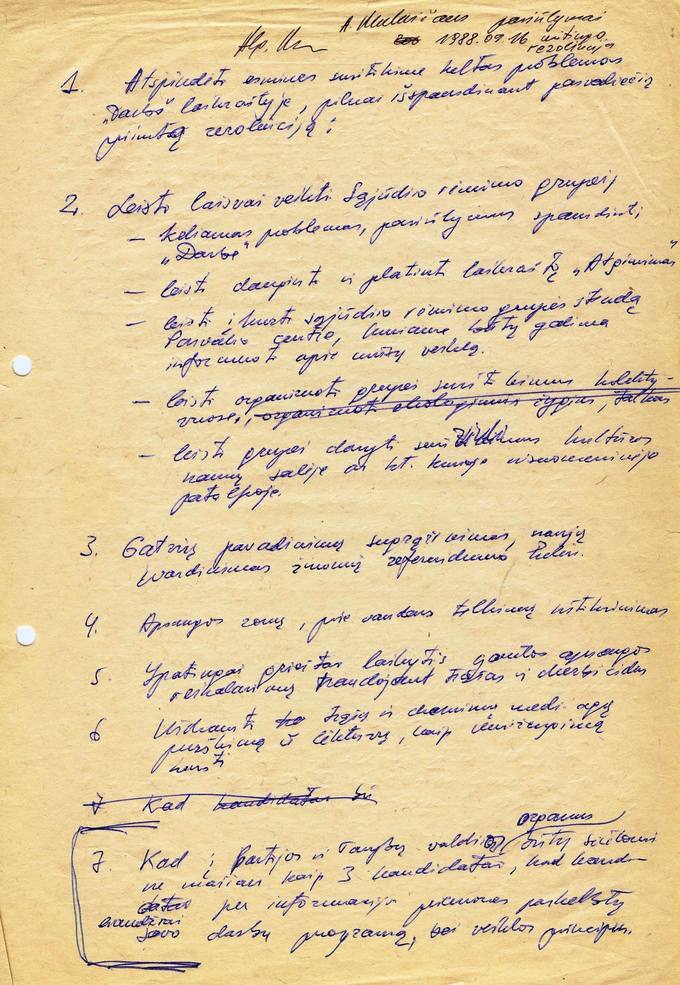 A. Malaičians pasiūlymai
1988.09.16 mitingo
rezoliucija
1. Atspindėti esmines susitikime keltas problemas
„Darbo" laikraštyje, pilnai išspausdinant pasvaliečių
priimtą rezoliuciją;
2. Leisti laisvai veikti Sąjūdžio rėmimo grupei;
– keliamas problemas, pasiūlymus spausdinti
„Darbe"
– leisti dauginti ir platinti laikraštį „Atgimimas"
– leisti įkurti sąjūdžio rėmimo grupės stendą
Pasvalio centre, kuriame būtų galima
informuoti apie mūsų veiklą.
– leisti organizuoti grupei susitikimus kolekty-
vuose, organizuoti ekologinius žygius, talkas
– leisti grupei daryti susitikimus kultūros
namų salėje ar kt. kurioje visuomeninėje
patalpoje.
3. Gatvių pavadinimų sugrąžinimas, naujų
įvardinimas žmonių referendumo keliu.
4. Apsaugos zonų, prie vandens telkinių užtikrinimas
5. Ypatingai griežtai laikytis gamtos apsaugos
reikalavimų naudojant trąšas ir herbicidus
6 Uždrausti trąšų ir cheminių medžiagų
purškimą iš lėktuvų, kaip
7 Kad kandidatai
organus
7. Kad į Partijos ir Tarybų valdžios būtų siūlomi
ne mažiau kaip 3 kandidatai, kad kandi-
datai per informacijos priemones paskelbtų
savo darbų programą, bei veiklos principus.